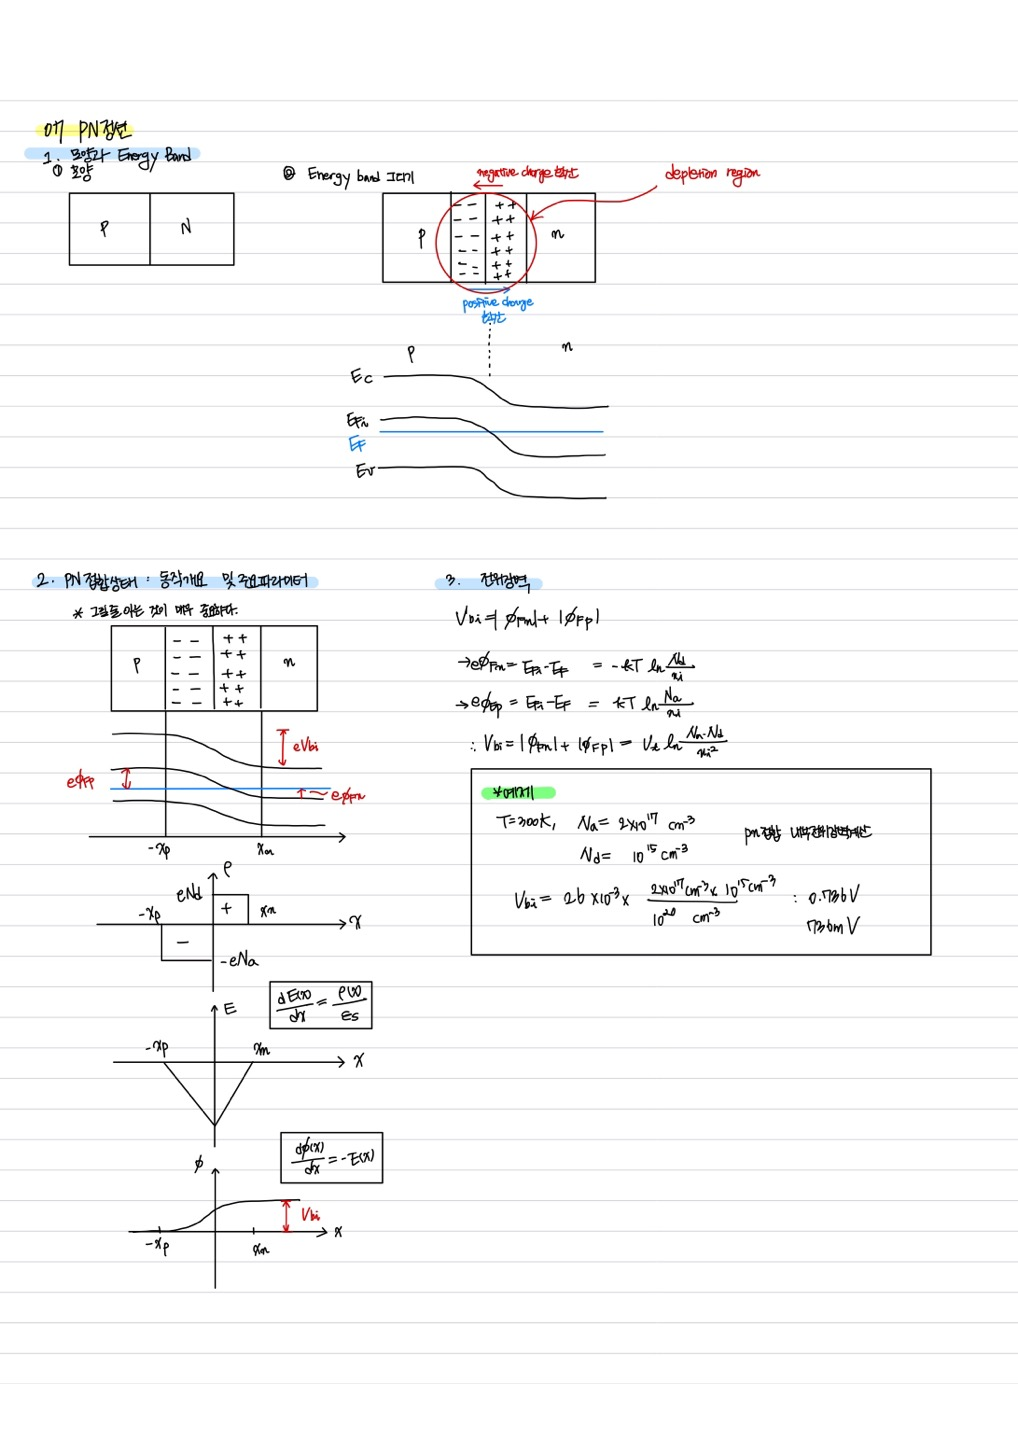 07 PN접선
1. 모양과 Energy Band
① 모양
P N
② Energy band 그리기
negative charge 확산
depletion region
P
n
positive charge
확산
P n
Ec
EFi
EF
Ev
2. PN접합상태 : 동작개요 및 주요파라미터
* 그림을 아는 것이 매우 중요하다.
P
n
eVbi
eϕFp
eϕFn
-xp xn
ρ
eNd
-xp + xn x
-
-eNa
E
dE(x)/dx = ρ(x)/εs
-xp xn x
ϕ
dϕ(x)/dx = -E(x)
Vbi
-xp xn x
3. 전위장벽
Vbi = |ϕFn| + |ϕFp|
→ eϕFn = EFi - EF = -kT ln Nd/ni
→ eϕFp = EFi - EF = kT ln Na/ni
∴ Vbi = |ϕFn| + |ϕFp| = Vt ln Na·Nd/ni²
*예제
T=300K, Na = 2×10¹⁷ cm⁻³
Nd = 10¹⁵ cm⁻³
pn접합 내부전위장벽계산
Vbi = 26 ×10⁻³ × 2×10¹⁷cm⁻³ × 10¹⁵cm⁻³ / 10²⁰ cm⁻³ : 0.736V
736mV